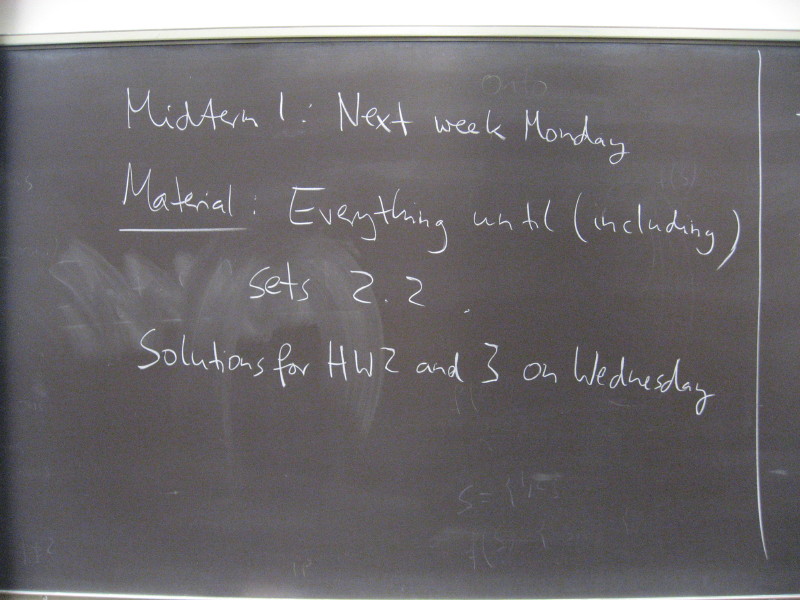 Midterm 1: Next week Monday
Material: Everything until (including)
sets 2.2.
Solutions for HW2 and 3 on Wednesday